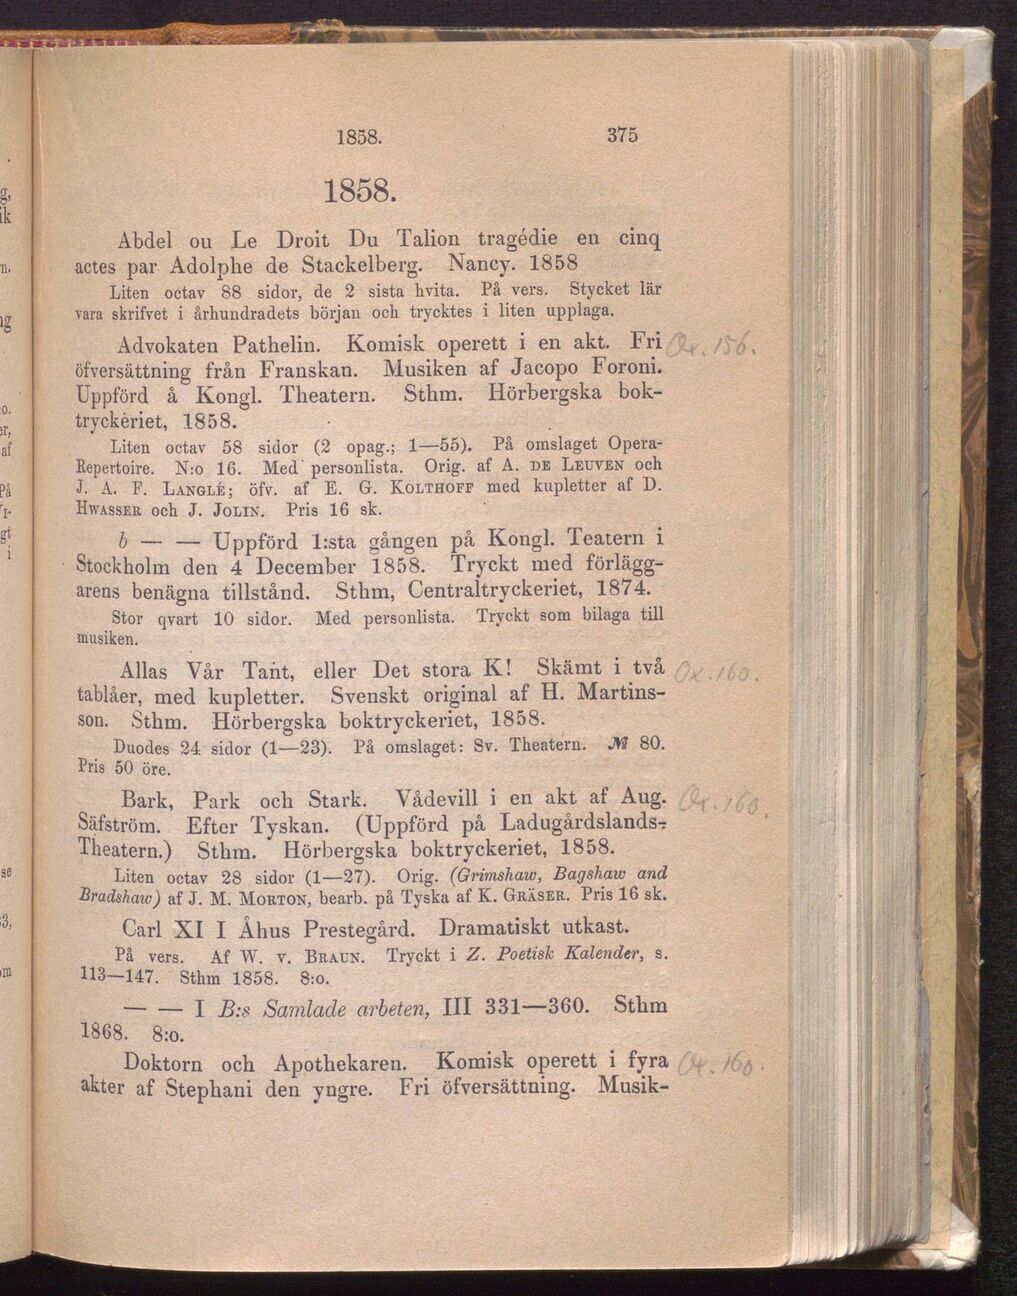 1858. 375
1858.
Abdel ou Le Droit Du Talion tragédie en cinq
actes par Adolphe de Stackelberg. Nancy. 1858
Liten octav 88 sidor, de 2 sista hvita. På vers. Stycket lär
vara skrifvet i århundradets början och trycktes i liten upplaga.
Advokaten Pathelin. Komisk operett i en akt. Fri Ox. 156.
öfversättning från Franskan. Musiken af Jacopo Foroni.
Uppförd å Kongl. Theatern. Sthm. Hörbergska bok-
tryckeriet, 1858.
Liten octav 58 sidor (2 opag.; 1—55). På omslaget Opera-
Repertoire. N:o 16. Med personlista. Orig. af A. DE LEUVEN och
J. A. F. LANGLÉ; öfv. af E. G. KOLTHOFF med kupletter af D.
HWASSER och J. JOLIN. Pris 16 sk.
b — — Uppförd 1:sta gången på Kongl. Teatern i
Stockholm den 4 December 1858. Tryckt med förlägg-
arens benägna tillstånd. Sthm, Centraltryckeriet, 1874.
Stor qvart 10 sidor. Med personlista. Tryckt som bilaga till
musiken.
Allas Vår Tant, eller Det stora K! Skämt i två Ox. 160.
tablåer, med kupletter. Svenskt original af H. Martins-
son. Sthm. Hörbergska boktryckeriet, 1858.
Duodes 24 sidor (1—23). På omslaget: Sv. Theatern. № 80.
Pris 50 öre.
Bark, Park och Stark. Vådevill i en akt af Aug. Ox. 160.
Säfström. Efter Tyskan. (Uppförd på Ladugårdslands-
Theatern.) Sthm. Hörbergska boktryckeriet, 1858.
Liten octav 28 sidor (1—27). Orig. (Grimshaw, Bagshaw and
Bradshaw) af J. M. MORTON, bearb. på Tyska af K. GRÄSER. Pris 16 sk.
Carl XI I Åhus Prestegård. Dramatiskt utkast.
På vers. Af W. v. BRAUN. Tryckt i Z. Poetisk Kalender, s.
113—147. Sthm 1858. 8:o.
— — I B:s Samlade arbeten, III 331—360. Sthm
1868. 8:o.
Doktorn och Apothekaren. Komisk operett i fyra Ox. 160.
akter af Stephani den yngre. Fri öfversättning. Musik-